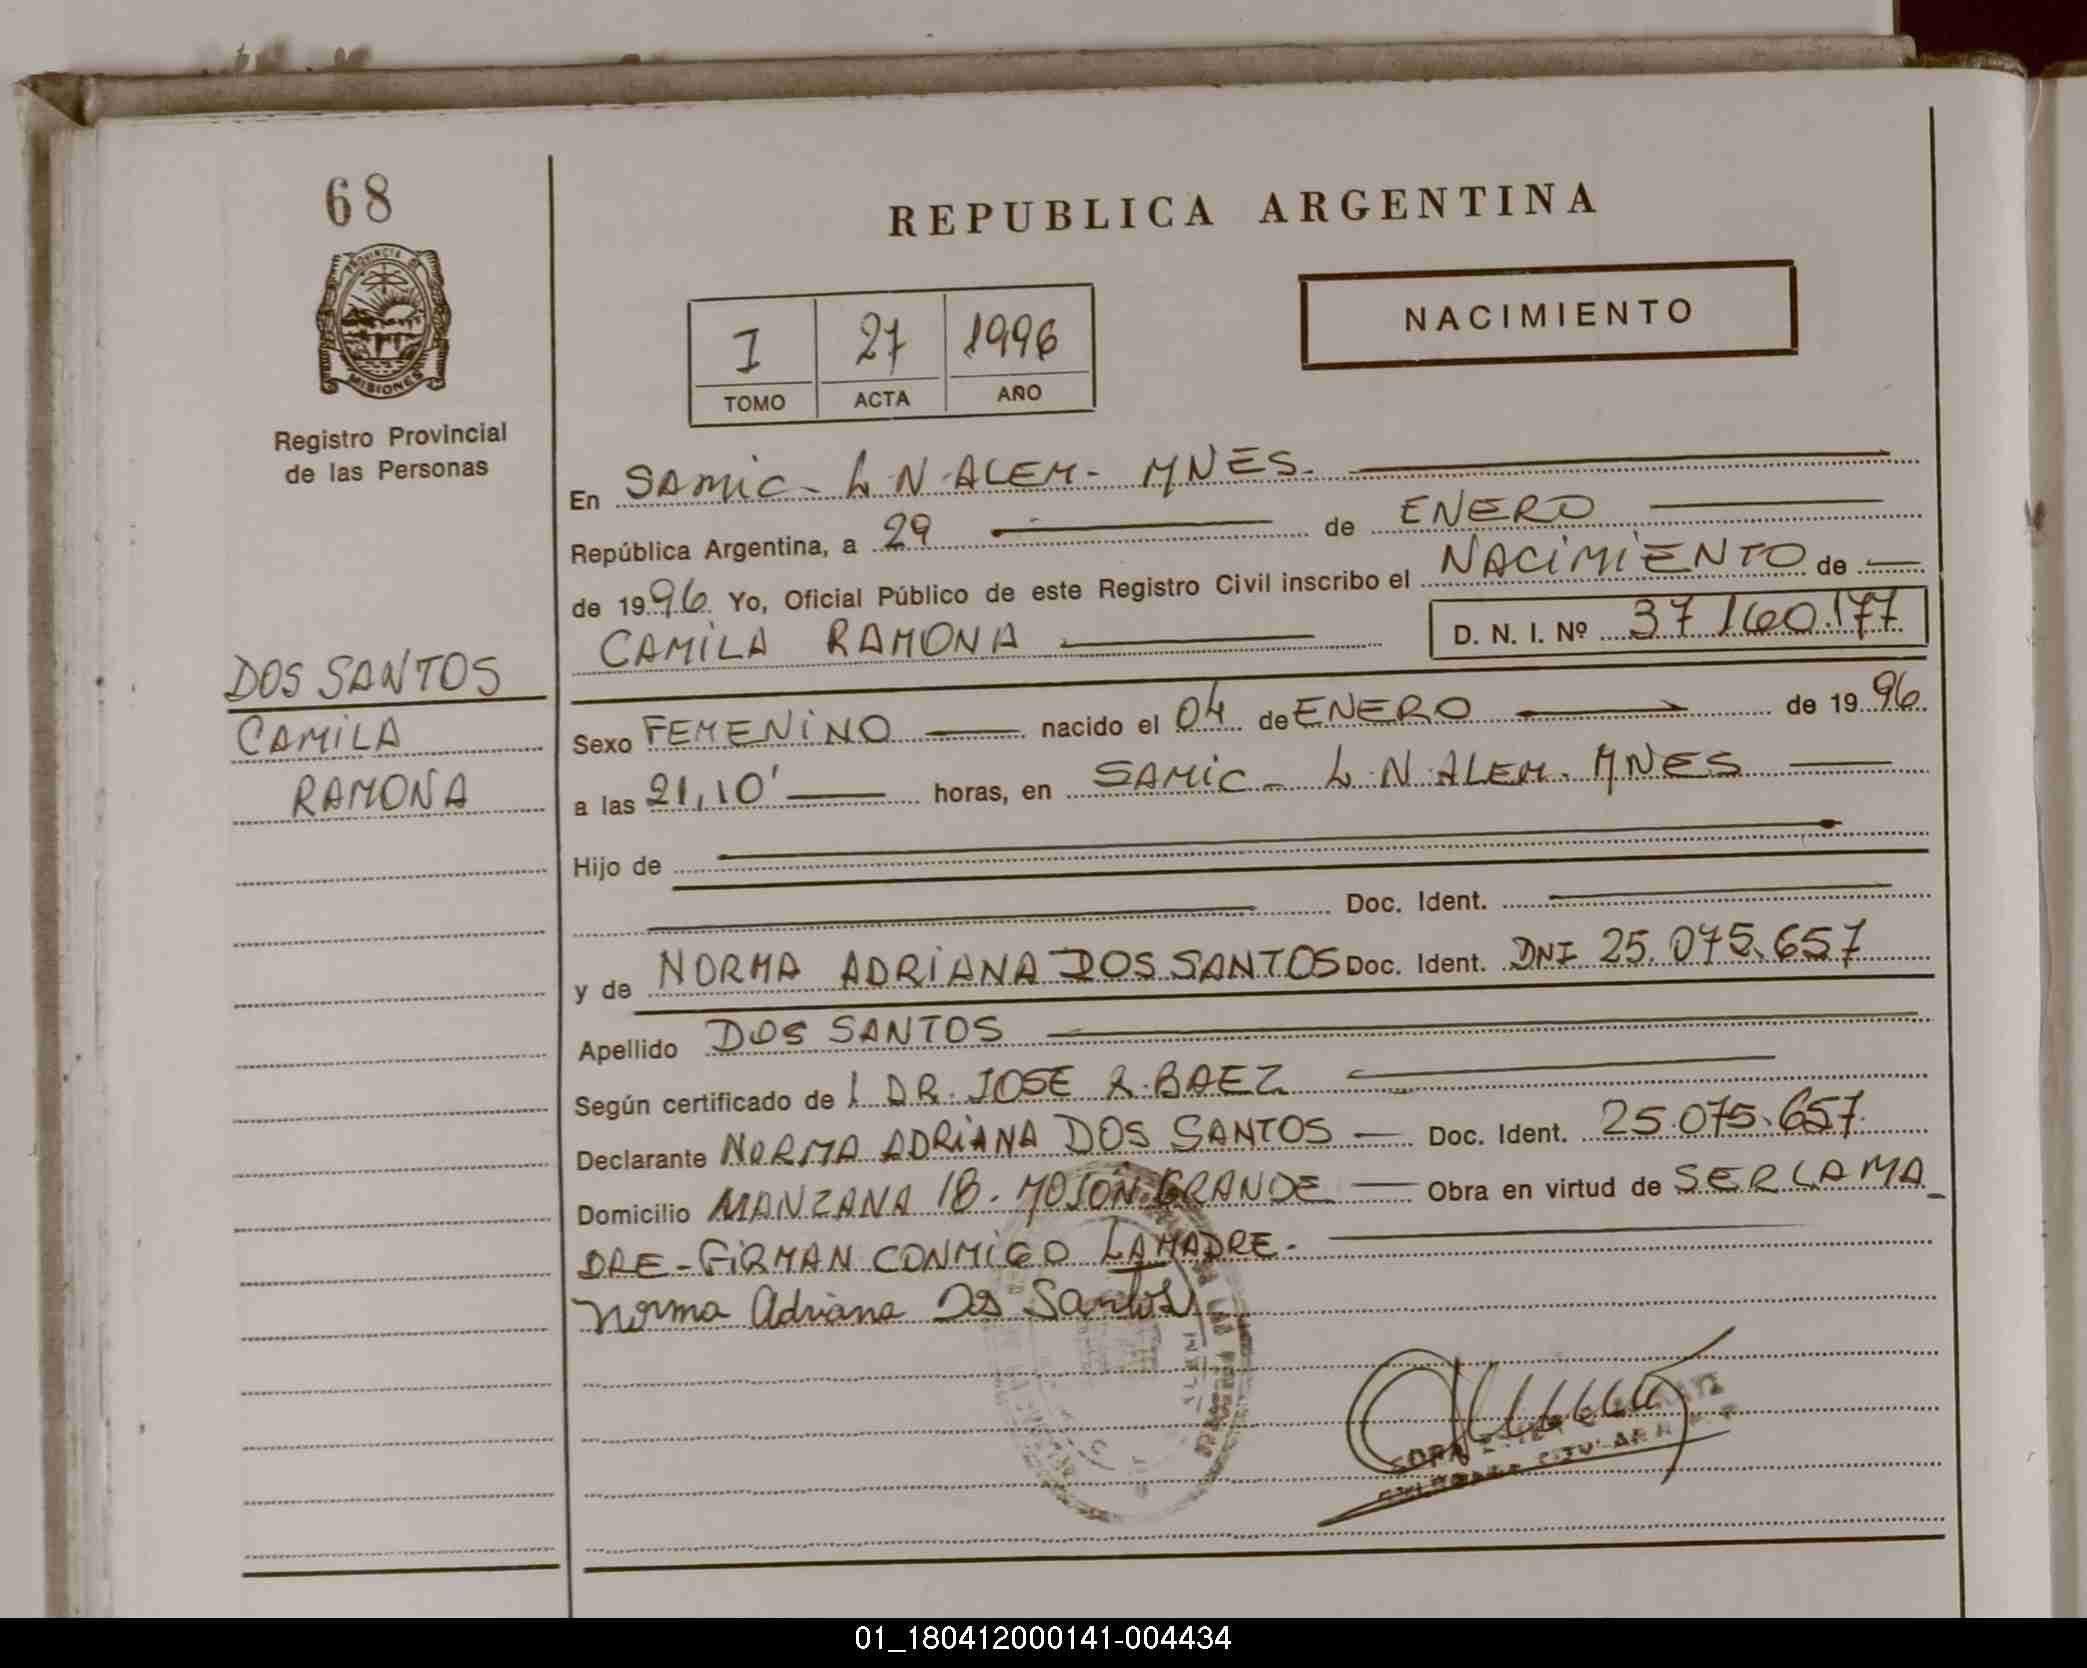 68
PROVINCIA DE
MISIONES
Registro Provincial
de las Personas
DOS SANTOS
CAMILA
RAMONA
REPUBLICA ARGENTINA
I 27 1996
TOMO ACTA AÑO
NACIMIENTO
En SAMIC - L. N. ALEM - MNES.
República Argentina, a 29 de ENERO
de 1996 Yo, Oficial Público de este Registro Civil inscribo el NACIMIENTO de
CAMILA RAMONA D. N. I. Nº 37 160.177
Sexo FEMENINO nacido el 04 de ENERO de 1996
a las 21,10' horas, en SAMIC - L. N. ALEM. MNES
Hijo de
Doc. Ident.
y de NORMA ADRIANA DOS SANTOS Doc. Ident. DNI 25.075.657
Apellido DOS SANTOS
Según certificado de l DR. JOSE R. BAEZ
Declarante NORMA ADRIANA DOS SANTOS Doc. Ident. 25.075.657
Domicilio MANZANA 18. MOJON GRANDE Obra en virtud de SER LA MA
DRE - FIRMAN CONMIGO LA MADRE.
Norma Adriana Dos Santos
01_180412000141-004434